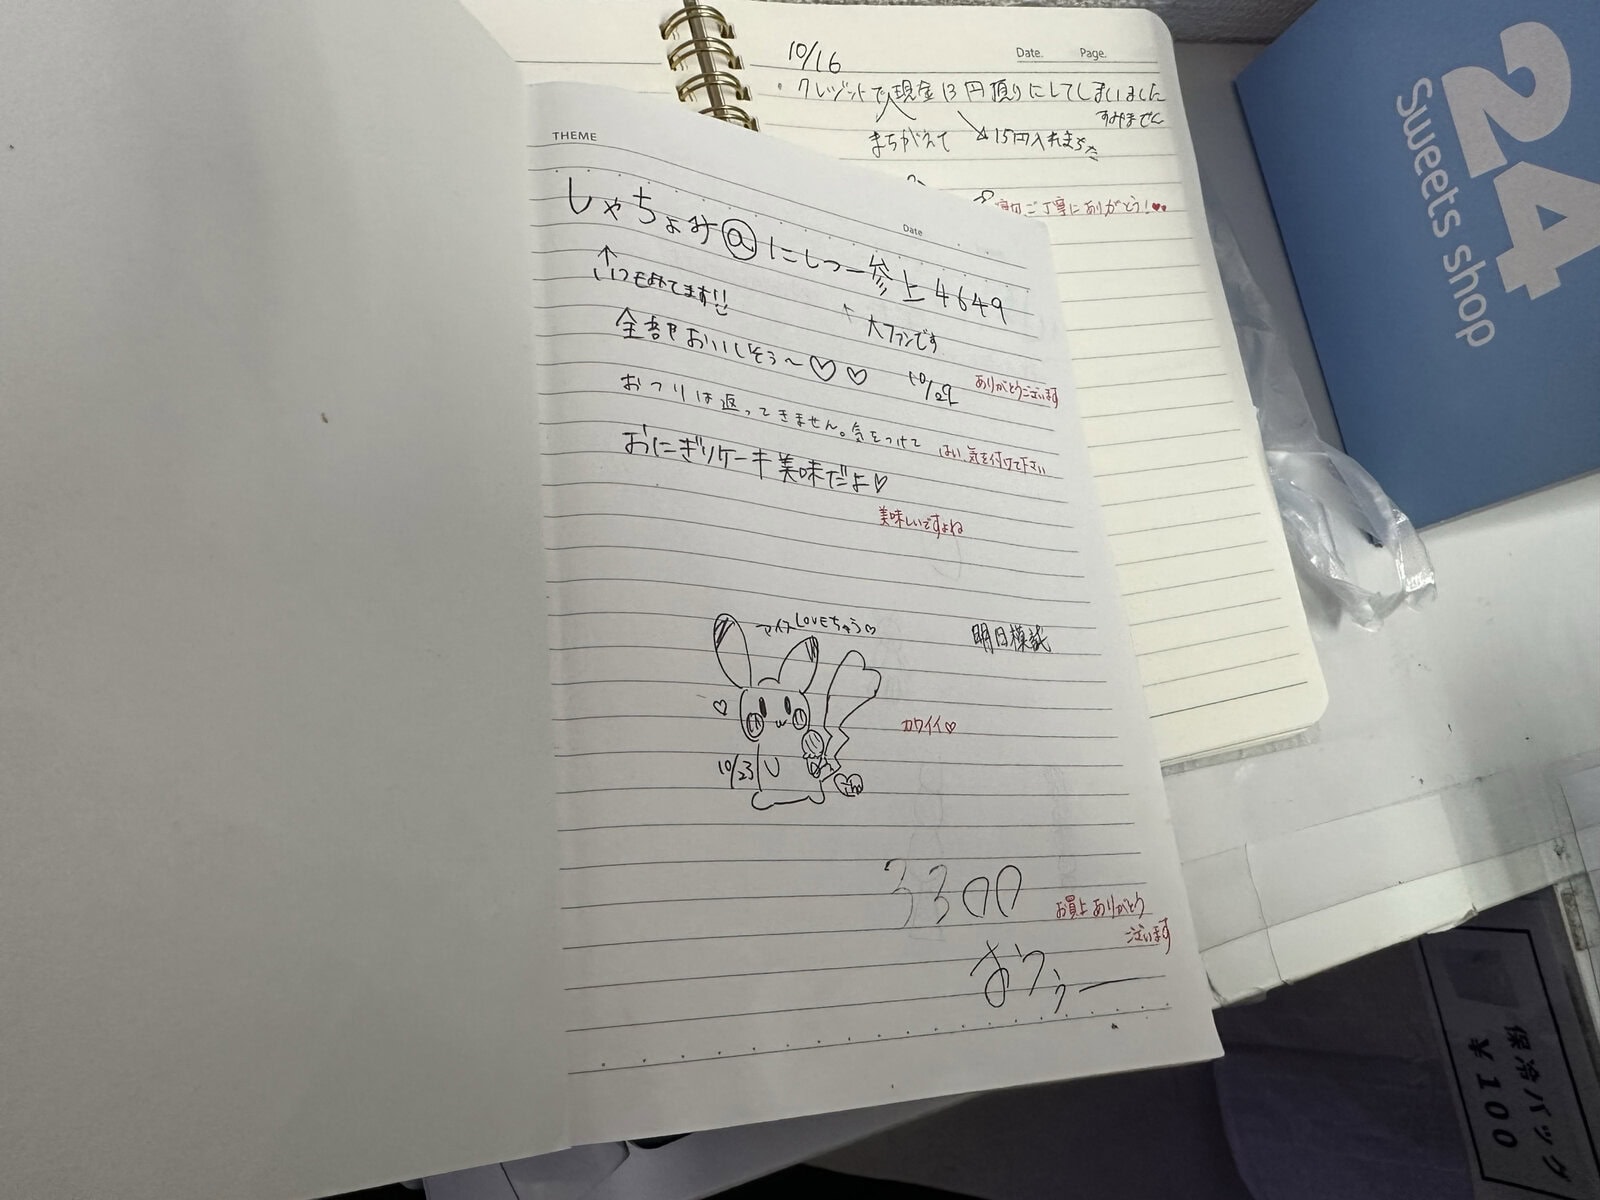 10/16
Date. Page.
・クレジットで現金13円頂りにしてしまいました
すみません
まちがえて
↘15円入れます
ご丁寧にありがとう!♥♥
THEME
Date
しゃちょみ@にしつー参上4649
↑
いつもみてます!!
大ファンです
全部おいしそう～♡♡
10/29
ありがとうございます
おつりは返ってきません。気をつけて
はい、気を付けて下さい
おにぎりケーキ美味だよ♡
美味しいですよね
マイネLOVEちゅう♡
明日模試
カワイイ♡
10/23
3300
お買上ありがとう
ございます
24
Sweets shop
保冷バッグ
¥100